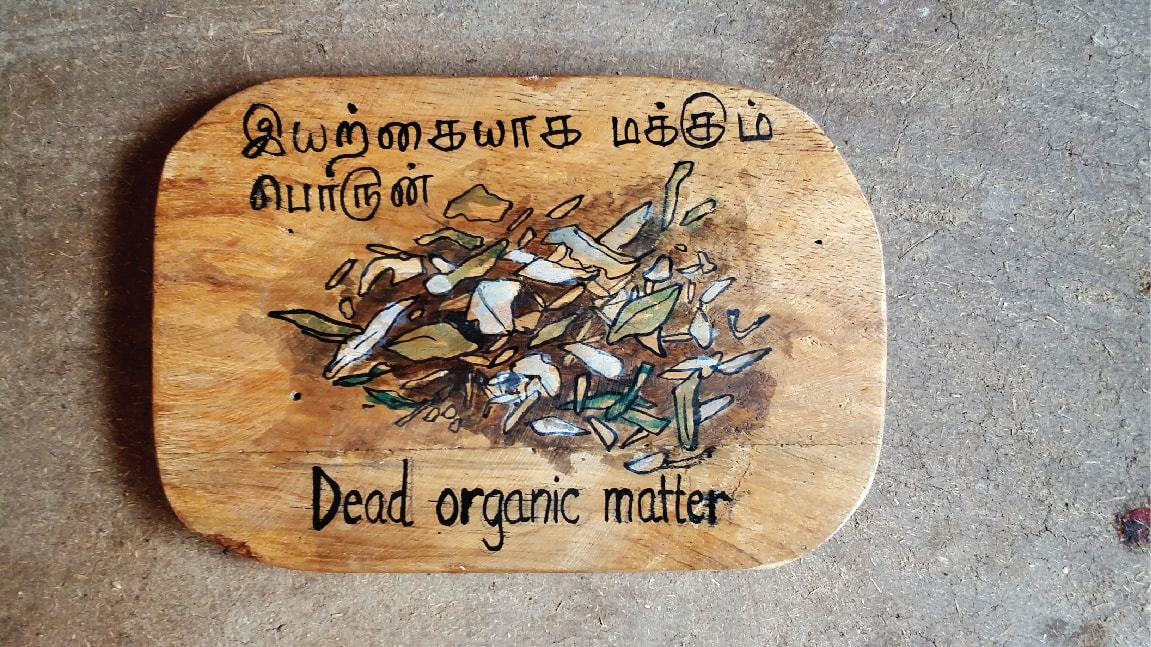 இயற்கையாக மக்கும்
பொருன்
Dead organic matter